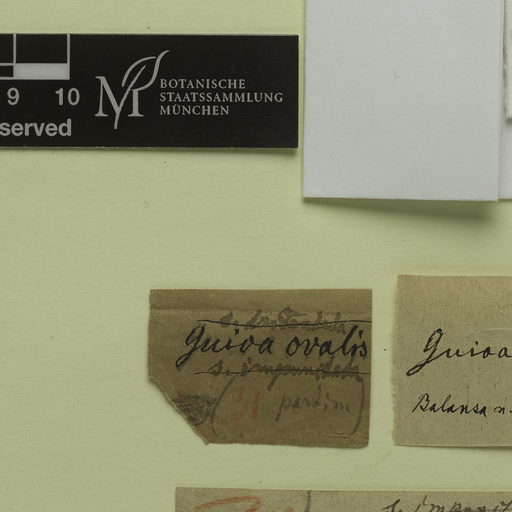 9 10
served
BOTANISCHE
STAATSSAMMLUNG
MÜNCHEN
Guioa ovalis
partim)
Guioa
Balansa n.